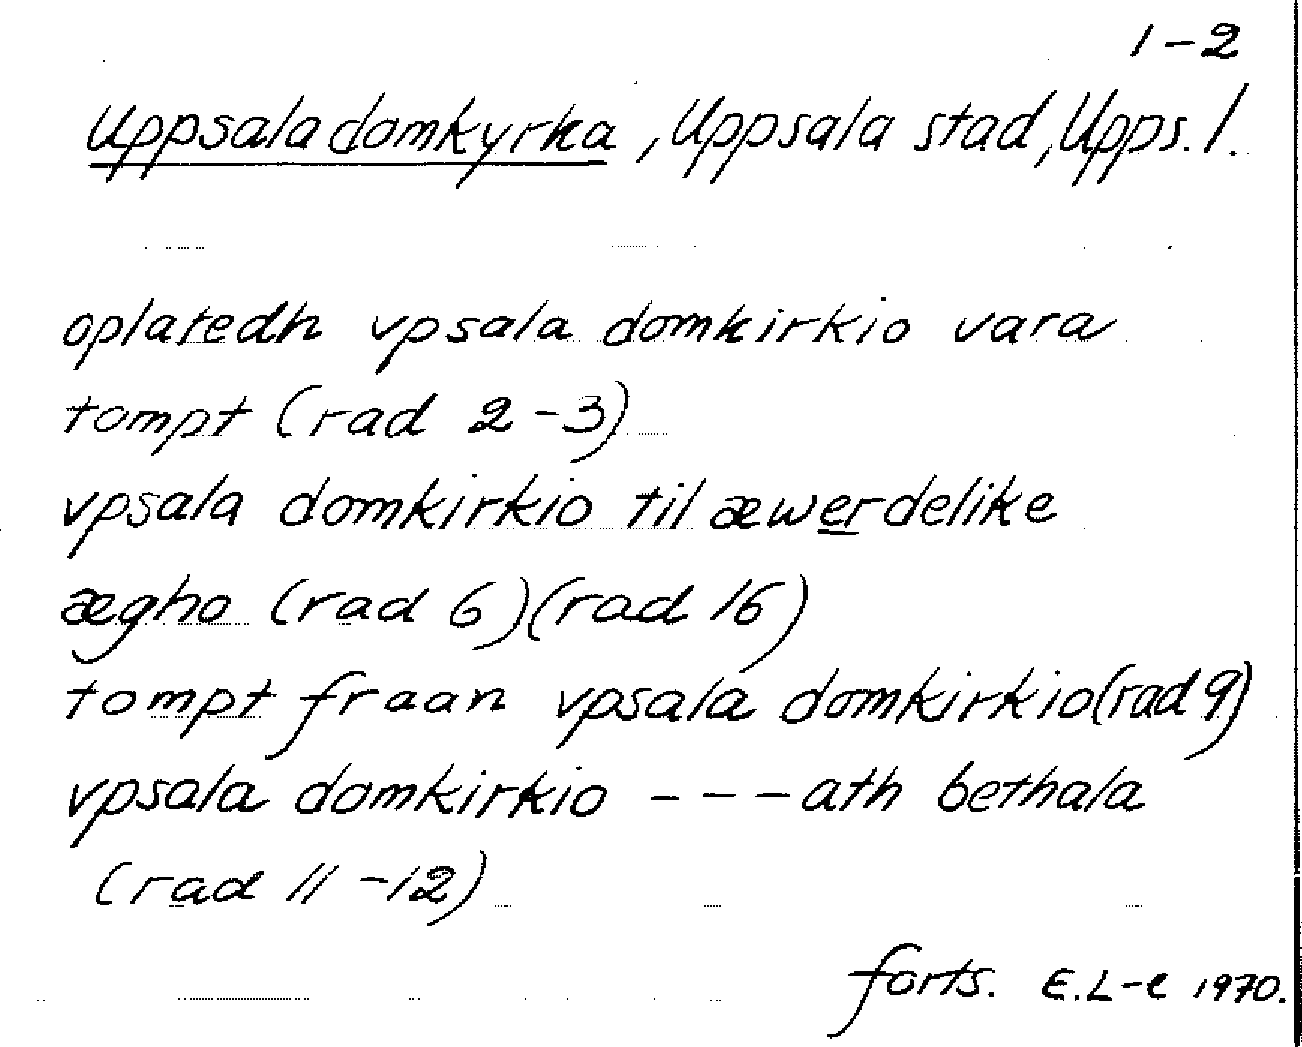 1-2
Uppsala domkyrka, Uppsala stad, Upps. l.
oplatedh vpsala domkirkio vara
tompt (rad 2-3)
vpsala domkirkio til æwerdelike
ægho (rad 6)(rad 16)
tompt fraan vpsala domkirkio(rad 9)
vpsala domkirkio --- ath bethala
(rad 11-12)
forts. E.L-e 1970.